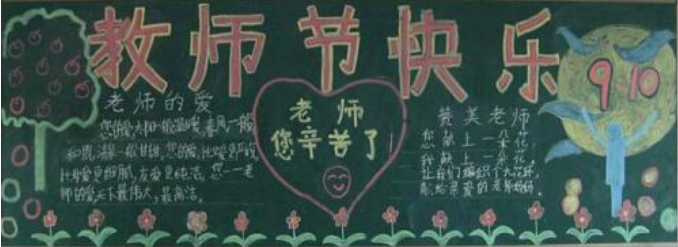 教师节快乐
9.10
老师的爱
您的爱,太阳一般温暖,春风一般
和煦,清泉一般甘甜。您的爱,比父爱更严峻,
比母爱更细腻,友爱更纯洁。您一老
师的爱,天下最伟大,最高洁。
老师
您辛苦了
赞美老师
您献上一朵花,
我献上一朵花,
让我们编织个大花环,
献给亲爱的老师妈妈。